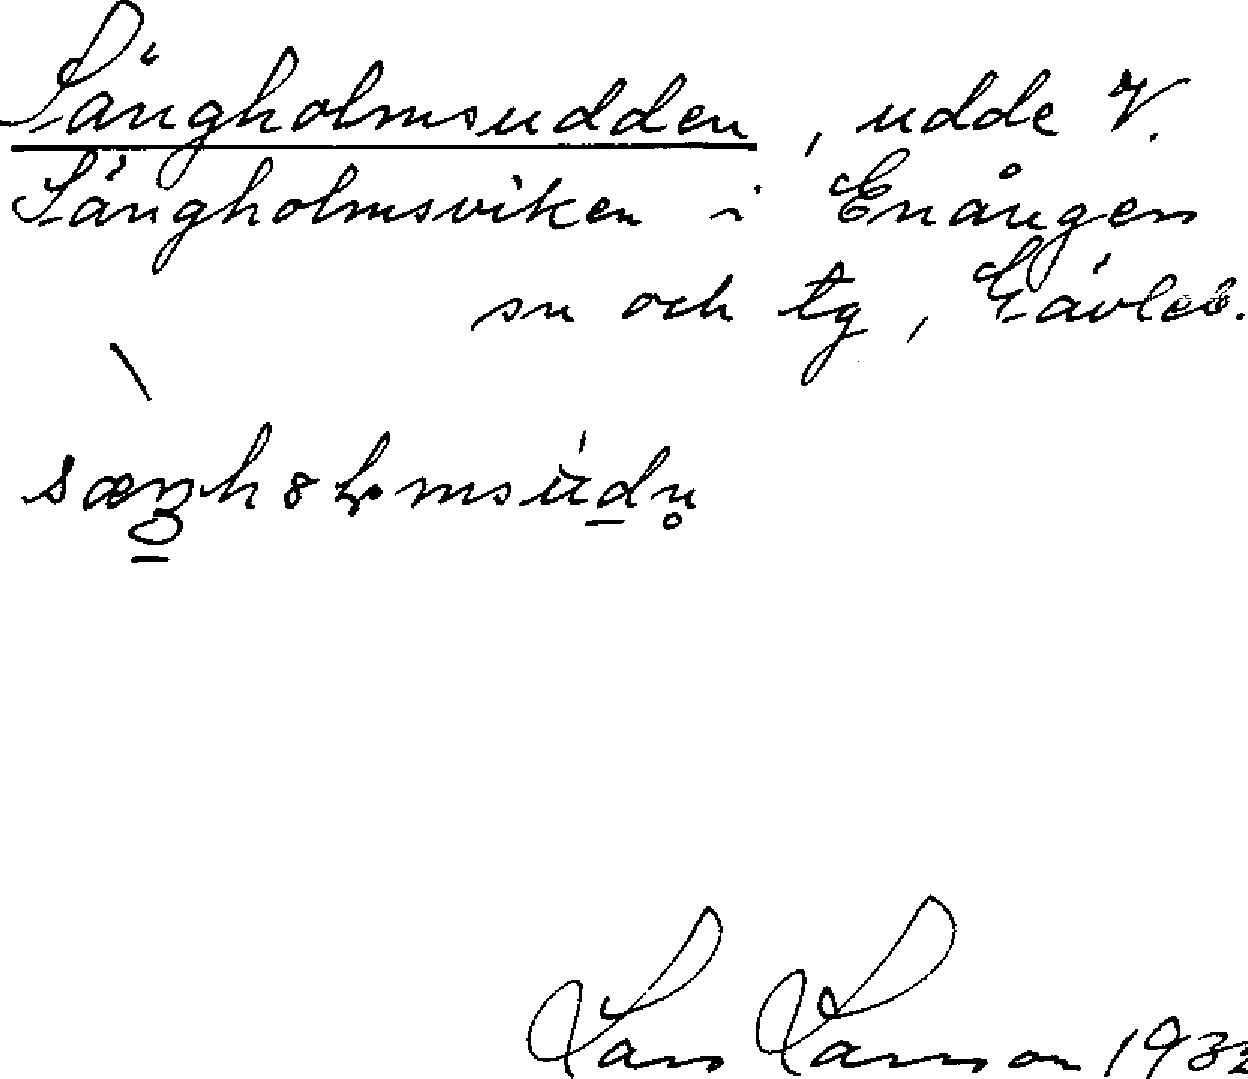 Sängholmsudden, udde V.
Sängholmsviken i Enångers
sn och tg, Gävleb.
Lars Larsson 1932